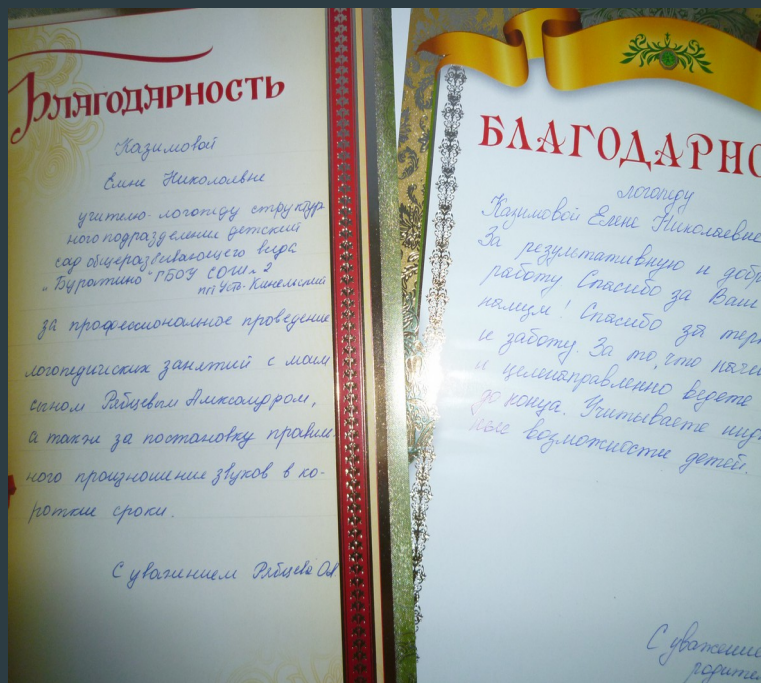 Благодарность
Казимовой
Елене Николаевне
учителю-логопеду структур
ного подразделении детский
сад общеразвивающего вида
"Буратино" ГБОУ СОШ №2
пгт Усть-Кинельский
за профессиональное проведение
логопедических занятий с моим
сыном Рябцевым Александром,
а также за постановку правиль
ного произношение звуков в ко-
роткие сроки.
С уважением Рябцева О.А.
БЛАГОДАРНО
логопеду
Казимовой Елене Николаевне
За результативную и добр
работу Спасибо за Ваш
! Спасибо за терп
и заботу. За то, что начи
и целенаправленно ведете
до конца. Учитываете инд
ные возможности детей.
С уважение
родите